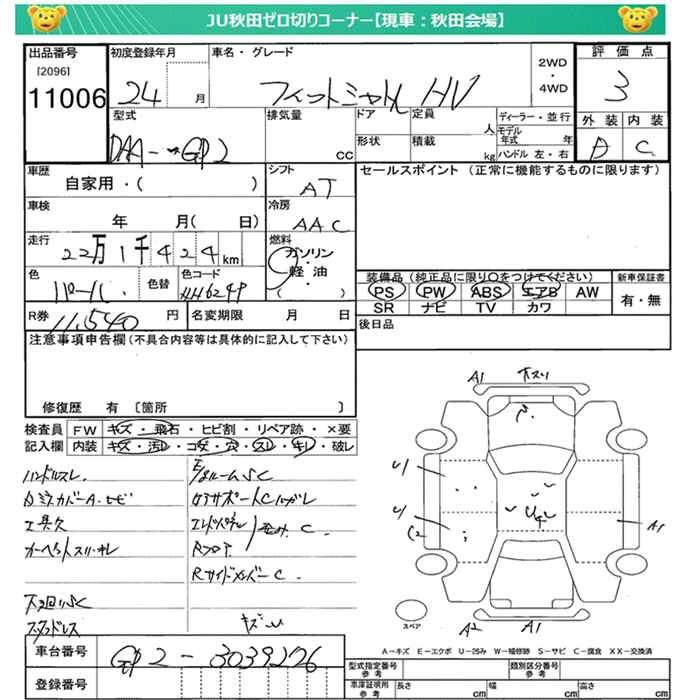 JU秋田ゼロ切りコーナー【現車：秋田会場】
出品番号
[2096]
11006
初度登録年月
24 月
車名・グレード
フィットシャトル HV
2WD
・
4WD
評価点
3
外装 内装
D C
型式
DAA-GP2
排気量
CC
ドア
定員
人
形状
積載
kg
ディーラー・並行
モデル年式 年
ハンドル 左・右
車歴
自家用・( )
シフト
AT
セールスポイント (正常に機能するものに限ります)
車検
年 月( 日)
冷房
AAC
走行
22万1千424km
燃料
ガソリン
軽油
( ・ )
色
パール
色替
色コード
NH624P
装備品 (純正品に限り○をつけてください)
PS PW ABS エアB AW
SR ナビ TV カワ
新車保証書
有・無
R券
11,540円
名変期限 月 日
後日品
注意事項申告欄(不具合内容等は具体的に記入して下さい)
修復歴 有 〔箇所 〕
検査員
記入欄
FW キズ・飛石・ヒビ割・リペア跡・×要
内装 キズ・汚レ・コゲ・穴・スレ・キレ・破レ
ハンドルスレ
工具欠
下回りSC
スタッドレス
Rフロア
RサイドメンバーC
キズ
A1
A1
A2
A1
C2
スペア
A－キズ E－エクボ U－凹み W－補修跡 S－サビ C－腐食 XX－交換済
車台番号
GP2-3039276
登録番号
型式指定番号
参考
類別区分番号
参考
車庫証明用
参考
長さ cm
幅 cm
高さ cm